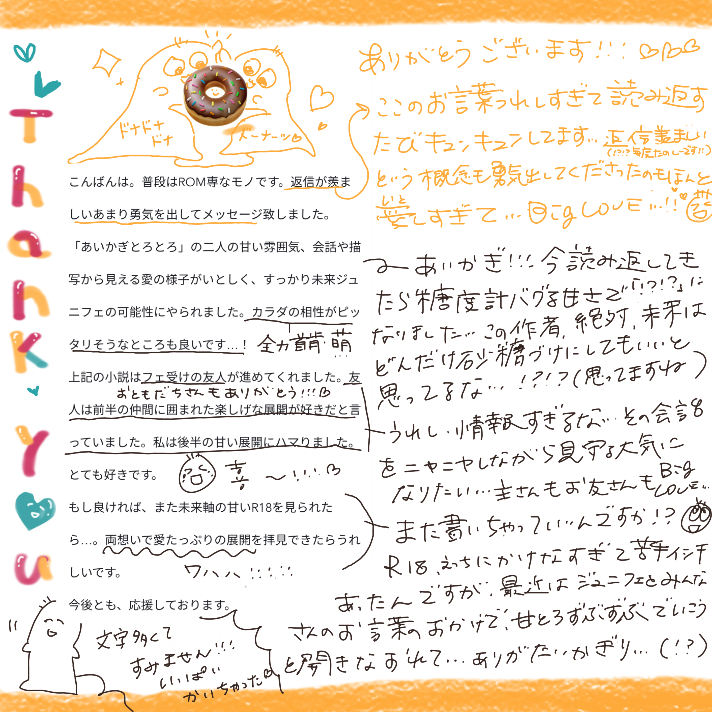 Thank you
ドナドナ
ドナ
ドーナーツ
こんばんは。普段はROM専なモノです。返信が羨ま
しいあまり勇気を出してメッセージ致しました。
「あいかぎとろとろ」の二人の甘い雰囲気、会話や描
写から見える愛の様子がいとしく、すっかり未来ジュ
ニフェの可能性にやられました。カラダの相性がピッ
タリそうなところも良いです…！
全力首肯
萌
上記の小説はフェ受けの友人が進めてくれました。友
おともだちさんもありがとう!!!♡
人は前半の仲間に囲まれた楽しげな展開が好きだと言
っていました。私は後半の甘い展開にハマりました。
とても好きです。
喜〜!!!♡
もし良ければ、また未来軸の甘いR18を見られた
ら…。両想いで愛たっぷりの展開を拝見できたらうれ
しいです。
ワハハ!!!!!
今後とも、応援しております。
文字多くて
すみません!!!
いっぱい
かいちゃった♡
ありがとうございます!!! ♡♡♡
ここのお言葉うれしすぎて読み返す
たびキュンキュンしてます…返信羨ましい
(!?!?毎度たのしーです!!)
という概念も勇気出してくださったのもほんと
いと
愛しすぎて…Big LOVE…!!
あいかぎ!!!今読み返してき
たら糖度計バグる甘さで「!?!?」に
なりました…この作者、絶対、未来は
どんだけ砂糖づけにしてもいいと
思ってるな…!?!?(思ってますね)
うれしい情報すぎるな…その会話
をニヤニヤしながら見守る大気に
なりたい…主さんもお友さんもBig LOVE…
また書いちゃっていいんですか!?
R18、えっちにかけなすぎて苦手インチ
あったんですが、最近はジュニフェとみんな
さんのお言葉のおかげで、甘とろずぶずぶでいこう
と開きなおれて…ありがたいかぎり…(!?)